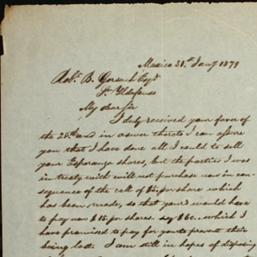 Mexico 28th Jany 1879
Robt. B. Gorsuch Esqr
Sn. Ildefonso
My dear Sir
I duly received your favor
of the 25th and in answer thereto I can assure
you that I have done all I could to sell
your Esperanza shares, but the parties I was
in treaty with will not purchase now in con-
sequence of the call of $15 pr share which
has been made, so that you would have to
pay now $15 pr shares. say $60. which I
have promised to pay for you to prevent their
being lost. I am still in hopes of disposing